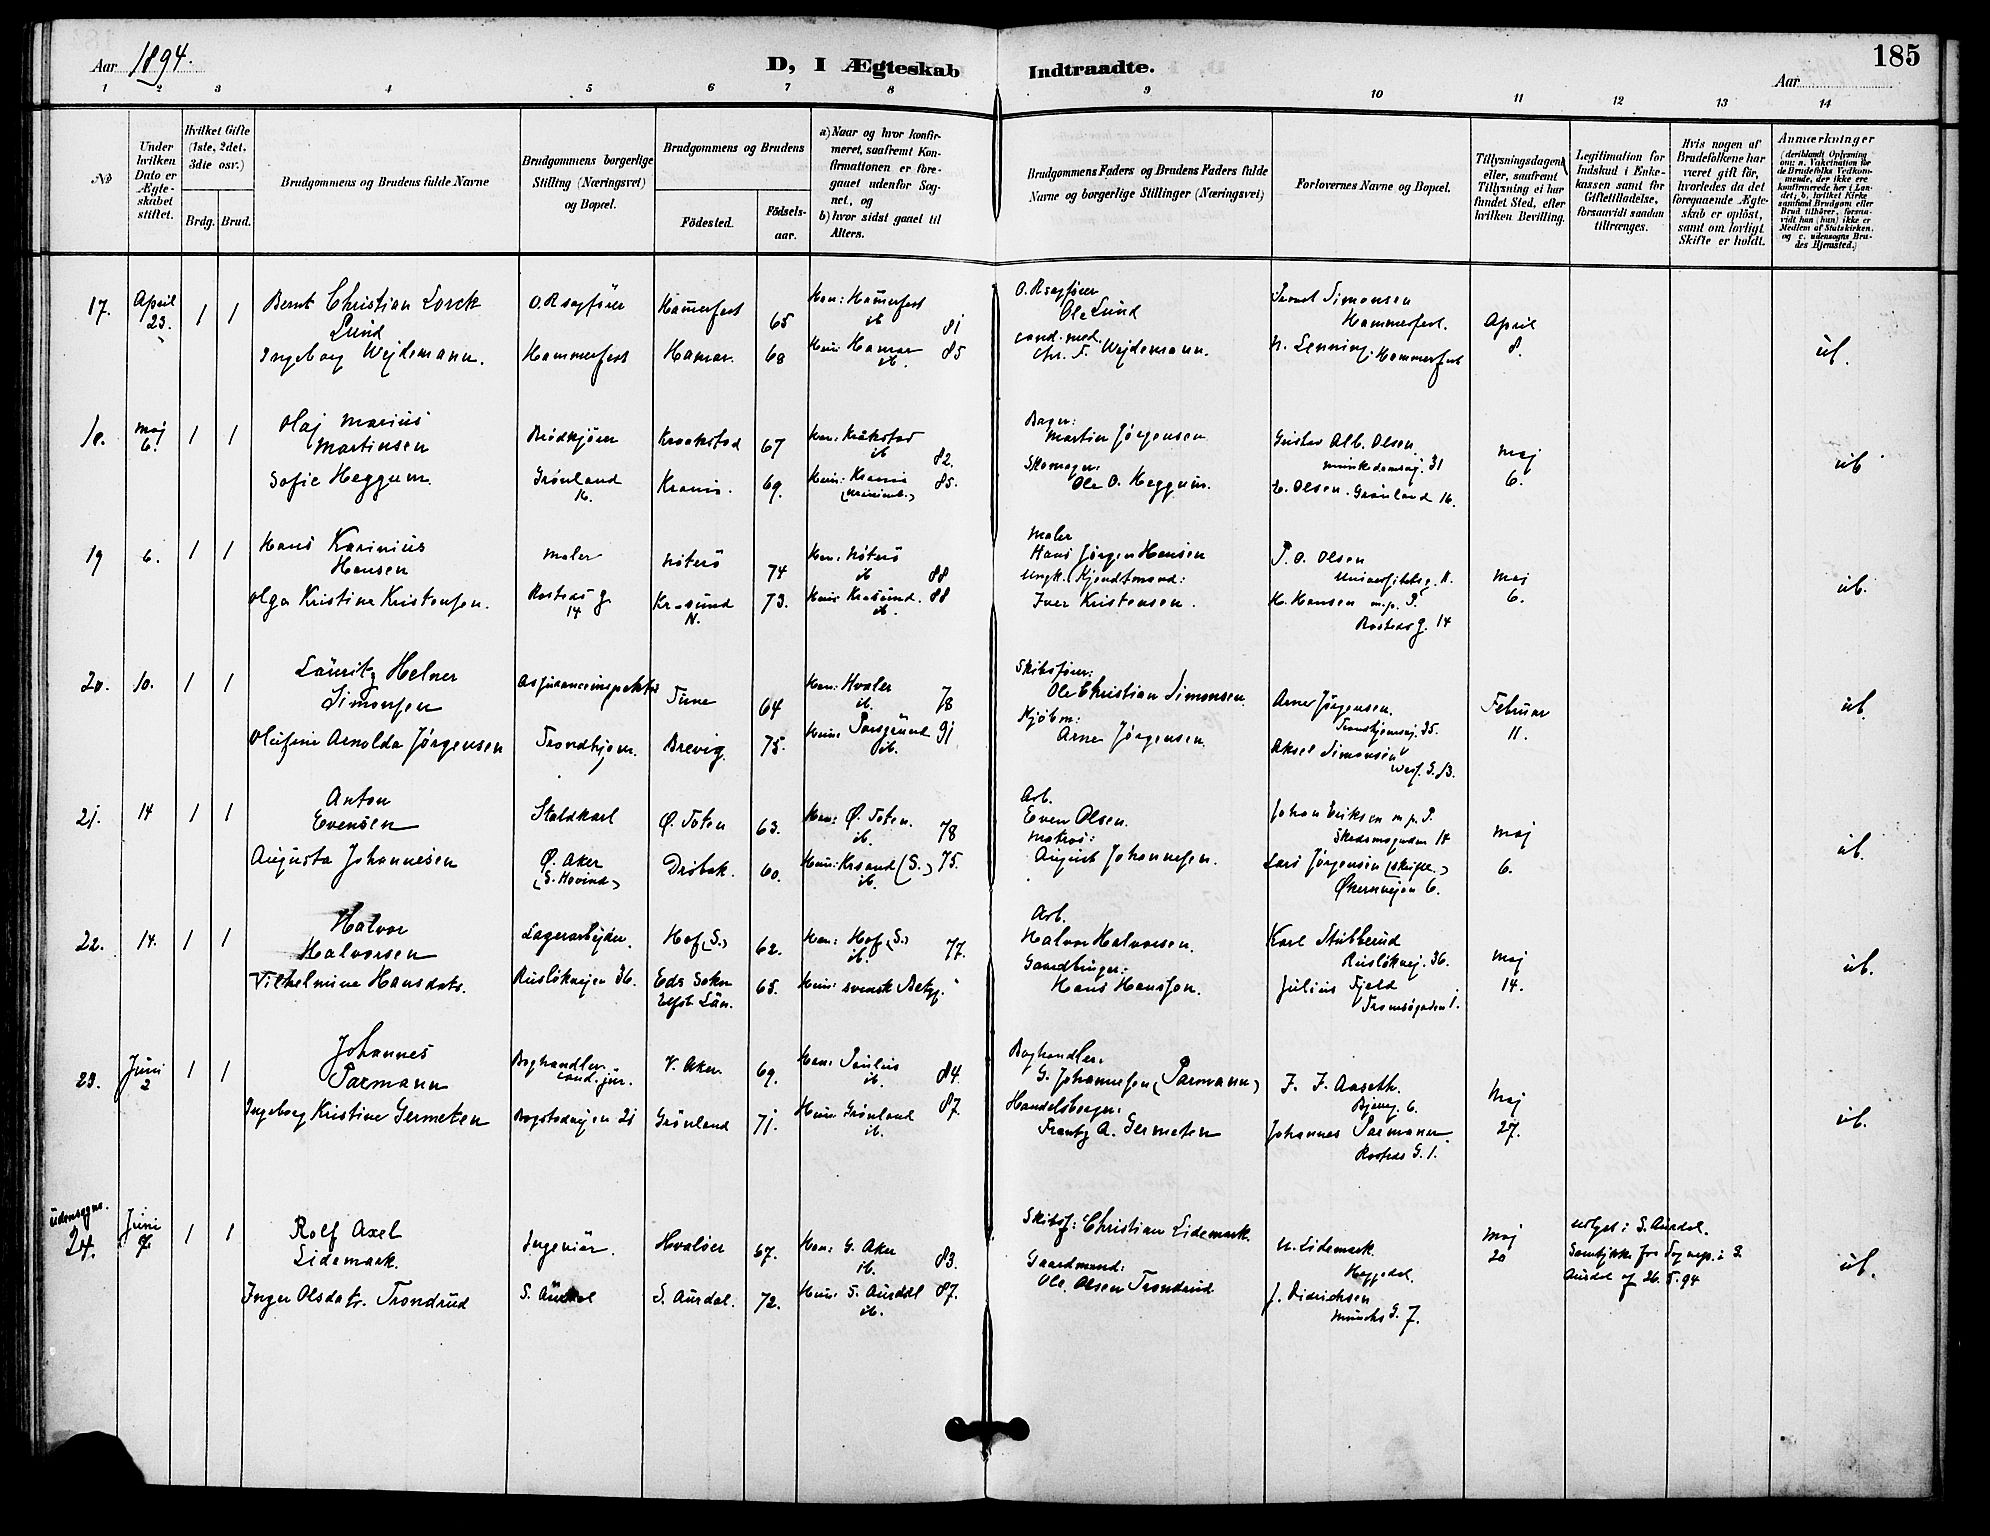 185
Aar 1894.
D, I Ægteskab Indtraadte.
Aar
1 2 3 4 5 6 7 8 9 10 11 12 13 14
No
Under hvilken Dato er Ægteskabet stiftet.
Hvilket Gifte (1ste, 2det, 3die osv.)
Brdg. Brud.
Brudgommens og Brudens fulde Navne
Brudgommens borgerlige Stilling (Næringsvei) og Bopæl.
Brudgommens og Brudens
Födested. Födselsaar.
a) Naar og hvor konfirmeret, saafremt Konfirmationen er foregaaet udenfor Sognet, og
b) hvor sidst gaaet til Alters.
Brudgommens Faders og Brudens Faders fulde Navne og borgerlige Stillinger (Næringsvei)
Forlovernes Navne og Bopæl.
Tillysningsdagen eller, saafremt Tillysning ei har fundet Sted, efter hvilken Bevilling.
Legitimation for Indskud i Enkekassen samt for Giftetilladelse, forsaavidt saadan tiltrænges.
Hvis nogen af Brudefolkene har været gift för, hvorledes da det foregaaende Ægteskab er oplöst, samt om lovligt Skifte er holdt.
Anmærkninger
(deriblandt Oplysning om: a. Vakcination for de Brudefolks Vedkommende, der ikke ere konfirmerede her i Landet; b. hvilket Kirkesamfund Brudgom eller Brud tilhörer, forsaavidt han (hun) ikke er Medlem af Statskirken, og c. udensogns Brudes Hjemsted.)
17. April 23. 1 1 Bernt Christian Lorck Lund O. Rsagfører Hammerfest 65 Han: Hammerfest ib 81 O. Rsagfører Ole Lund Simonsen Hammerfest. April 8.
Ingeborg Wejdemann. Hammerfest Hamar. 68 Hun: Hamar ib. 85 cand. med. Chr. F. Wejdemann. N. Lenning, Hammerfest ub.
18. Maj 6. 1 1 Olaf Marius Martinsen Brödkjører Kraakstad 67 Han: Kråkstad ib 82. Bager: Martin Jørgensen Gustav Alb. Olsen. Munkedamsvj. 31 Maj 6. ub
Sofie Heggum Grönland 16. Krania. 69. Hun: Krania 85. Skomager: Ole O. Heggum. E. Olsen. Grönland 16.
19 6. 1 1 Hans Karinius Hansen Maler Nöterö 74 Han: Nöterö ib 88 Maler Hans Jørgen Hansen P. O. Olsen Universitetsg. 11. Maj 6. ub.
Olga Kristine Kristensen. Rosteds g. 14 Kr.sund N. 73. Hun: Kr.sund. ib. 88 Ungk. (Kjendtmand: Iver Kristensen. H. Hansen m.p. P. Rosteds g. 14
20. 10. 1 1 Lauritz Helner Simonsen Assuranceinspektør Tune 64 Han: Hvaler ib. 78 Skibsfører: Ole Christian Simonsen Arne Jørgensen. Trondhjemsvj. 35. Februar 11. ub.
Olufine Arnolda Jørgensen Trondhjem. Brevig. 75. Hun: Porsgrund ib. 91 Kjöbm: Arne Jørgensen. Aksel Simonsen
21. 14 1 1 Anton Evensen Staldkarl Ø. Toten 63. Han: Ø. Toten. ib. 78 Arb. Even Olsen. Johan Eriksen m.p. P. 18 Maj 6. ub.
Augusta Johannesen Ø. Aker (S. Hovind) Dröbak. 60. Hun: Krsand (S.) ib. 75. Matros: August Johannesen. Lars Jørgensen Økernvejen 6.
22. 14. 1 1 Halvor Halvorsen Lagerarbejder. Hof (S.) 62. Han: Hof (S.) ib. 77. Arb. Halvor Halvorsen. Karl Stubberud Ruslökvej. 36. Maj 14. ub.
Vilhelmine Hansdatr. Ruslökvejen 36. Eds Sokn Elfsb. Län. 65. Hun: svensk Betyg. Gaardbruger: Hans Hansson. Julius Fjeld Tromsögaden 1.
23. Juni 2 1 1 Johannes Parmann Boghandler cand. jur. V. Aker. 69. Han: Paulus ib. 84. Boghandler. G. Johannesen (Parmann) J. J. Aaseth. 6. Maj 27. ub.
Ingeborg Kristine Germeten Bogstadvejen 21 Grönland 71. Hun: Grönland ib. 87. Handelsborger: Frantz A. Germeten Johannes Parmann. Rosteds G. 1.
udensogns. 24. Juni 7. 1 1 Rolf Axel Lidemark. Ingeniör. Hvalöer 67. Han: G. Aker ib. 83. Skibsf: Christian Lidemark. U. Lidemark. Heggedal. Maj 20 udlyst i S. Aurdal. Samtykke fra Sognep. i S. Aurdal af 26. 5. 94 ub.
Inger Olsdatr. Trondrud S. Aurdal S. Aurdal. 72. Hun: S. Aurdal ib. 87. Gaardmand: Ole Olsen Trondrud J. Didrichsen Munchs G. 7.